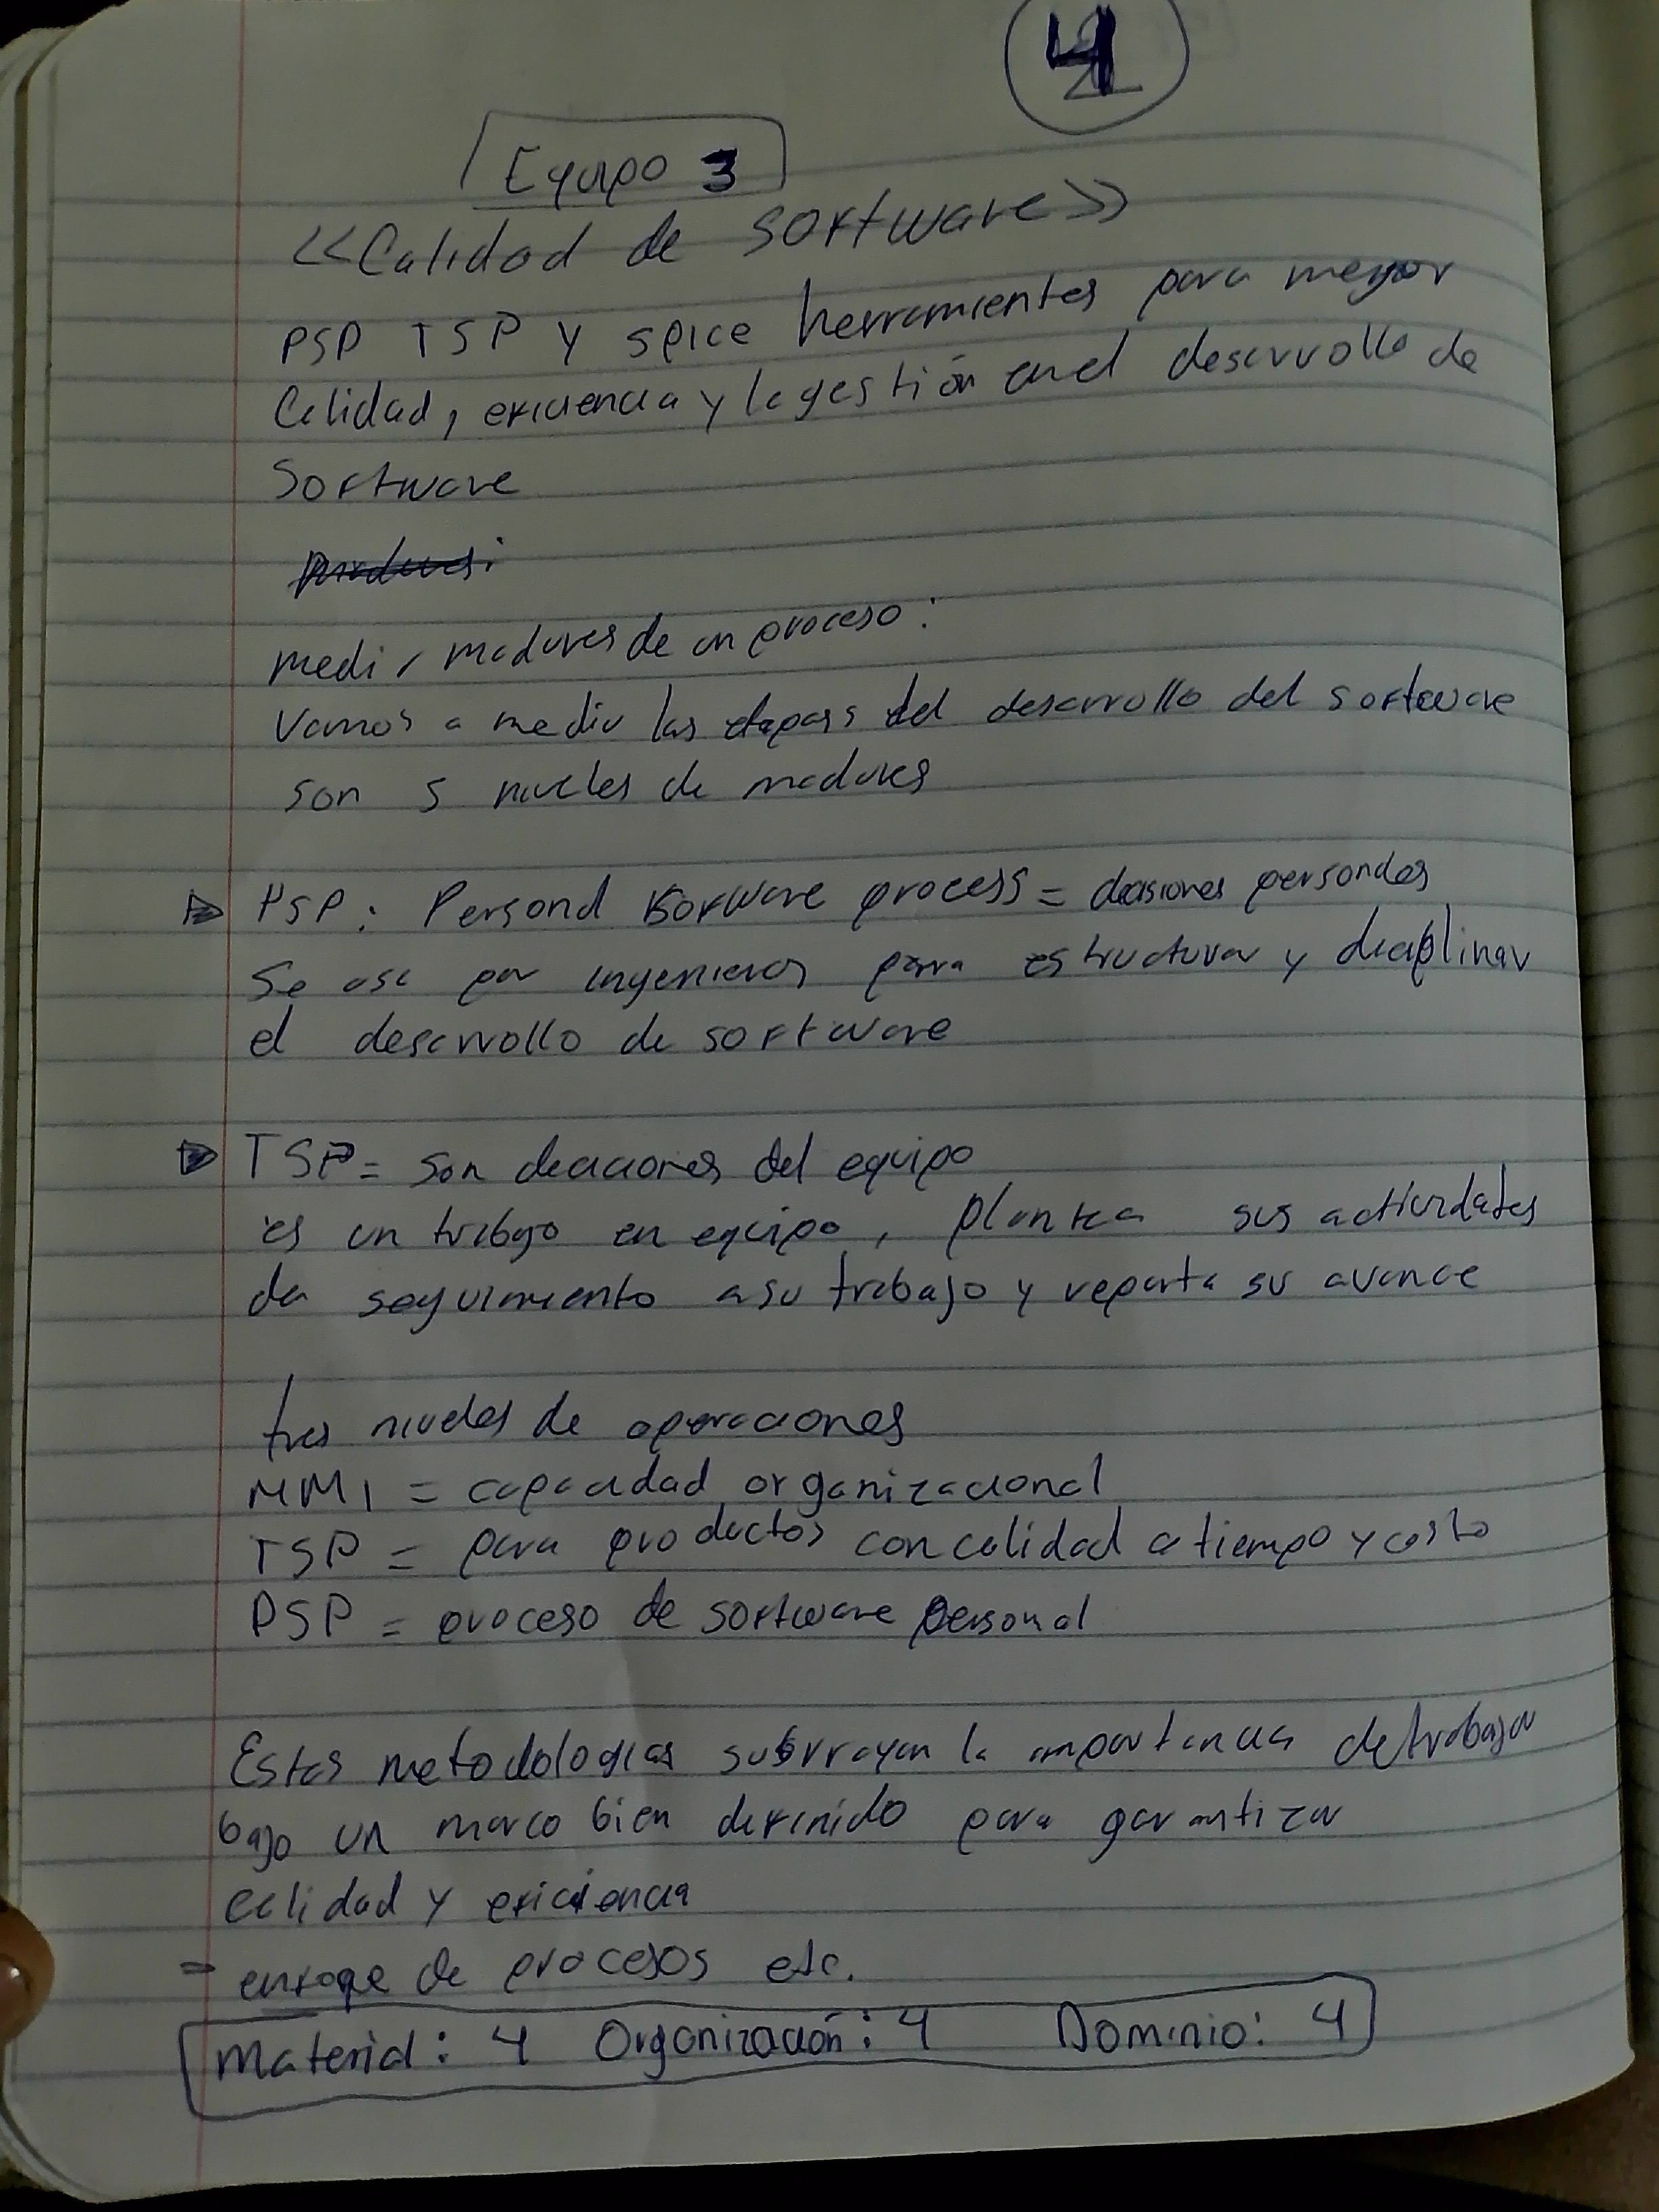 4
Equipo 3
<<Calidad de software>>
PSP TSP y spice herramientas para mejor
Calidad, eficiencia y la gestión en el desarrollo de
Software
medir madures de un proceso:
Vamos a medir las etapas del desarrollo del software
son 5 niveles de madures
PSP: Personal software process = decisiones personales
Se usa por ingenieros para estructurar y diciplinar
el desarrollo de software
TSP = son deciciones del equipo
es un trabajo en equipo, plantea sus actividades
da seguimiento a su trabajo y reporta su avance
tres niveles de operaciones
MMI = capacidad organizacional
TSP = para productos con calidad a tiempo y costo
PSP = proceso de software personal
Estas metodologias subrrayan la importancia de trabajar
bajo un marco bien definido para garantizar
calidad y eficiencia
= enfoque de procesos etc.
Material: 4 Organización: 4 Dominio: 4